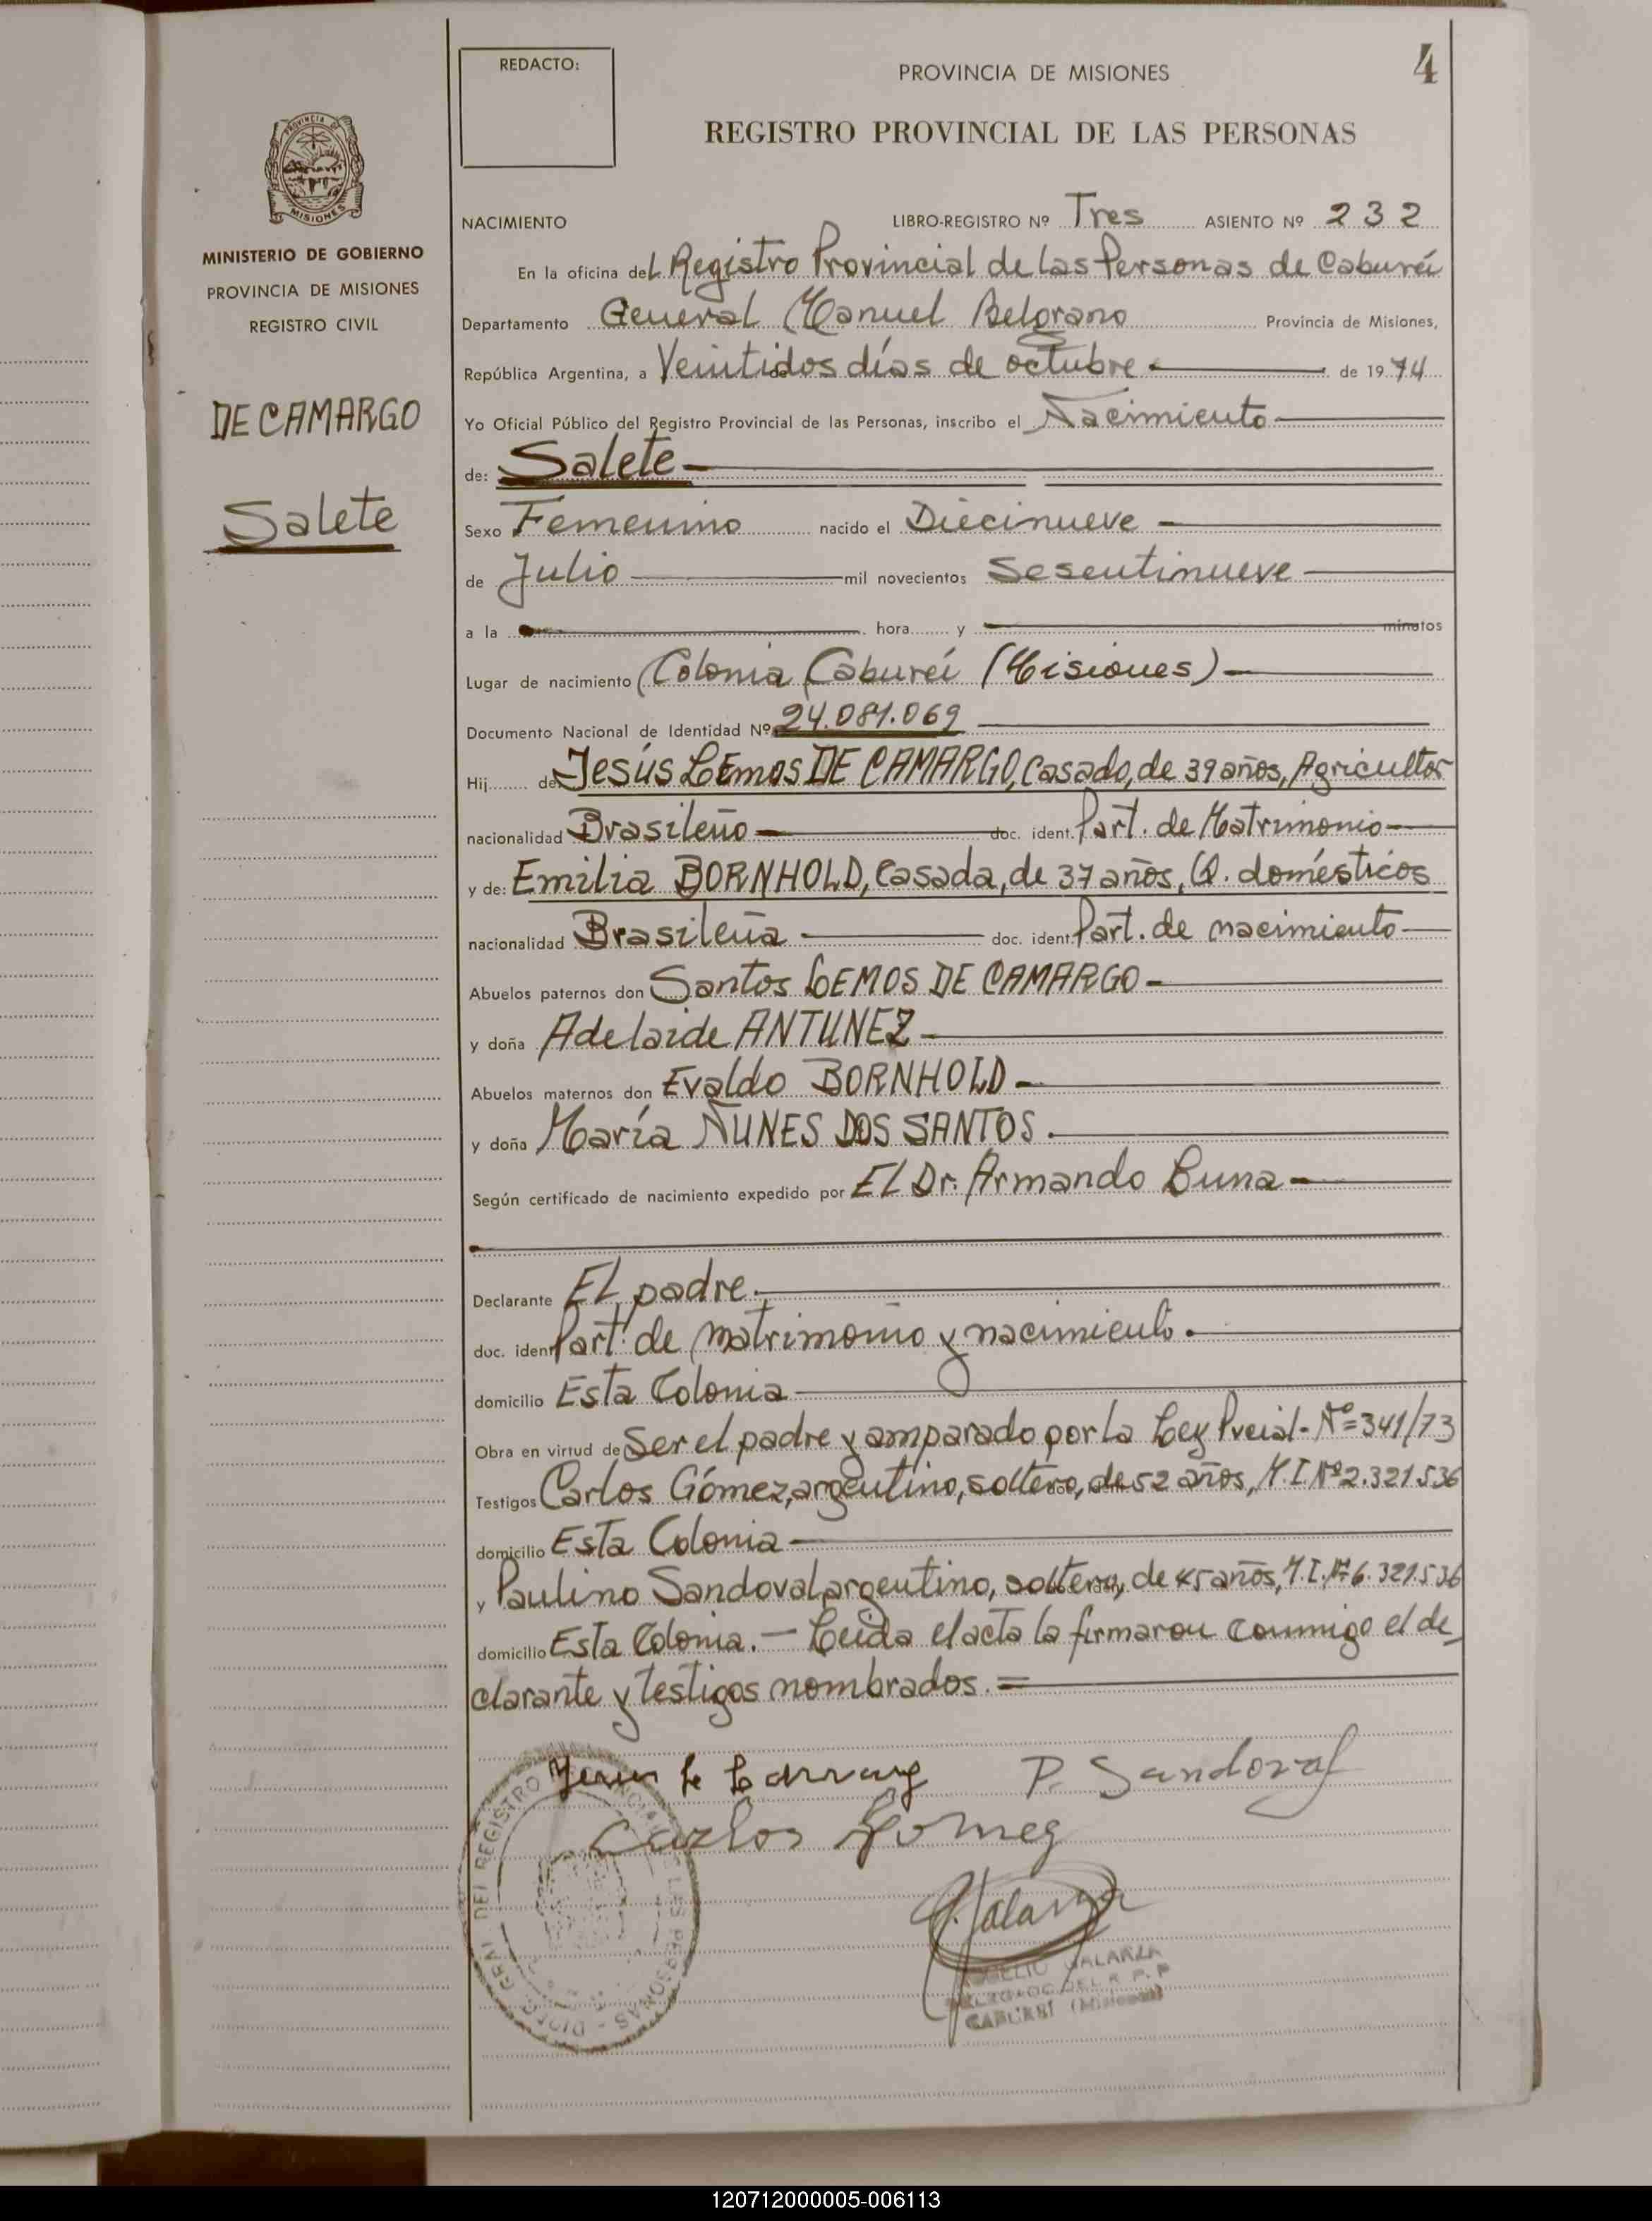 REDACTO:
PROVINCIA DE MISIONES
4
REGISTRO PROVINCIAL DE LAS PERSONAS
PROVINCIA DE
MISIONES
MINISTERIO DE GOBIERNO
PROVINCIA DE MISIONES
REGISTRO CIVIL
DE CAMARGO
Salete
NACIMIENTO LIBRO-REGISTRO Nº Tres ASIENTO Nº 232
En la oficina del Registro Provincial de las Personas de Caburéi
Departamento General Manuel Belgrano Provincia de Misiones,
República Argentina, a Veintidos días de octubre de 1974
Yo Oficial Público del Registro Provincial de las Personas, inscribo el Nacimiento
de: Salete
Sexo Femenino nacido el Diecinueve
de Julio mil novecientos Sesentinueve
a la hora y minutos
Lugar de nacimiento Colonia Caburéi (Misiones)
Documento Nacional de Identidad Nº 24.081.069
Hij de Jesús LEmos DE CAMARGO, Casado, de 39 años, Agricultor
nacionalidad Brasileño doc. ident. Part. de Matrimonio
y de: Emilia BORNHOLD, Casada, de 37 años, Q. domésticos
nacionalidad Brasileña doc. ident. Part. de nacimiento
Abuelos paternos don Santos LEMOS DE CAMARGO
y doña Adelaide ANTUNEZ
Abuelos maternos don Evaldo BORNHOLD
y doña María ÑUNES DOS SANTOS.
Según certificado de nacimiento expedido por El Dr. Armando Buna
Declarante El padre.
doc. ident Part. de matrimonio y nacimiento.
domicilio Esta Colonia
Obra en virtud de Ser el padre y amparado por la Ley Pvcial- Nº=341/73
Testigos Carlos Gómez, argentino, soltero, de 52 años, M.I. Nº 2.321.536
domicilio Esta Colonia
y Paulino Sandoval argentino, soltero, de 45 años, M.I. Nº 6.321.536
domicilio Esta Colonia. - Leida el acta la firmarou conmigo el de_
clarante y testigos nombrados. =
P. Sandoval
Carlos Gomez
DIREC. GRAL. DEL REGISTRO PERSONAS
ROGELIO GALARZA
DELEGADO DEL R. P. P
CABUREI (Misiones)
120712000005-006113